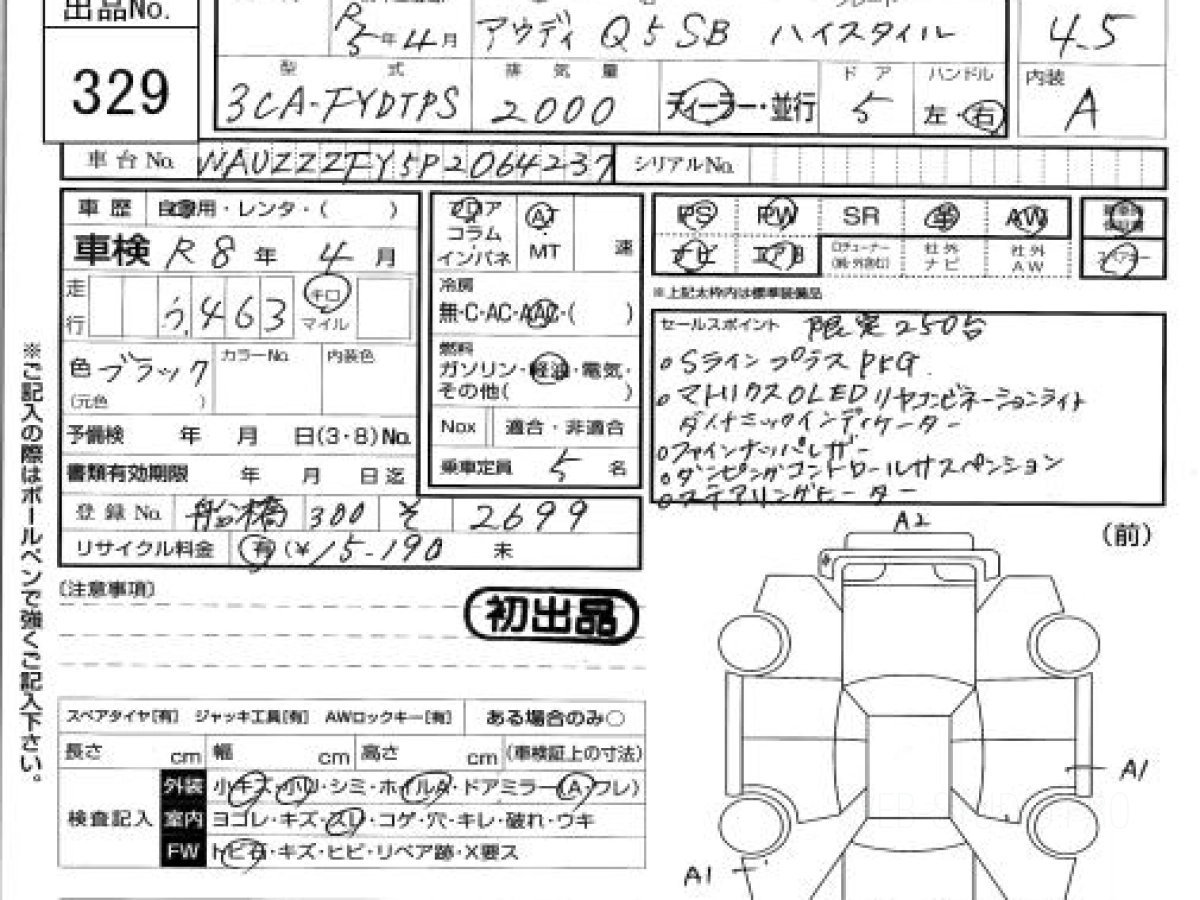 出品No.
329
R5年4月 アウディ Q5SB ハイスタイル
4.5
型式 排気量 ドア ハンドル
3CA-FYDTPS 2000 ディーラー・並行 5 左・右
内装
A
車台No. WAUZZZFY5P2064237 シリアルNo.
車歴 自家用・レンタ・( )
車検 R8年 4月
走行 463 キロ マイル
色 ブラック カラーNo. 内装色
(元色 )
予備検 年 月 日(3・8)No.
書類有効期限 年 月 日迄
登録No. 船橋 300 そ 2699
リサイクル料金 有(¥15-190 未
フロア AT
コラム
インパネ MT 速
冷房
無・C・AC・AAC・( )
燃料
ガソリン・軽油・電気・
その他( )
Nox 適合・非適合
乗車定員 5 名
PS PW SR 革 AW
ナビ エアB ロチューナー 社外ナビ 社外AW
スペアキー
※上記太枠内は標準装備品
セールスポイント 限定250台
○Sライン プラス PKG.
○マトリクスOLEDリヤコンビネーションライト
ダイナミックインディケーター
○ファインナッパレザー
○ダンピングコントロールサスペンション
○ステアリングヒーター
※ご記入の際はボールペンで強くご記入下さい。
(注意事項)
初出品
スペアタイヤ[有] ジャッキ工具[有] AWロックキー[有] ある場合のみ○
長さ cm 幅 cm 高さ cm (車検証上の寸法)
検査記入
外装 小キズ・小凹・シミ・ホイルA・ドアミラー(A・ワレ)
室内 ヨゴレ・キズ・スレ・コゲ・穴・キレ・破れ・ウキ
FW トビ石・キズ・ヒビ・リペア跡・X要ス
A2
(前)
A1
A1